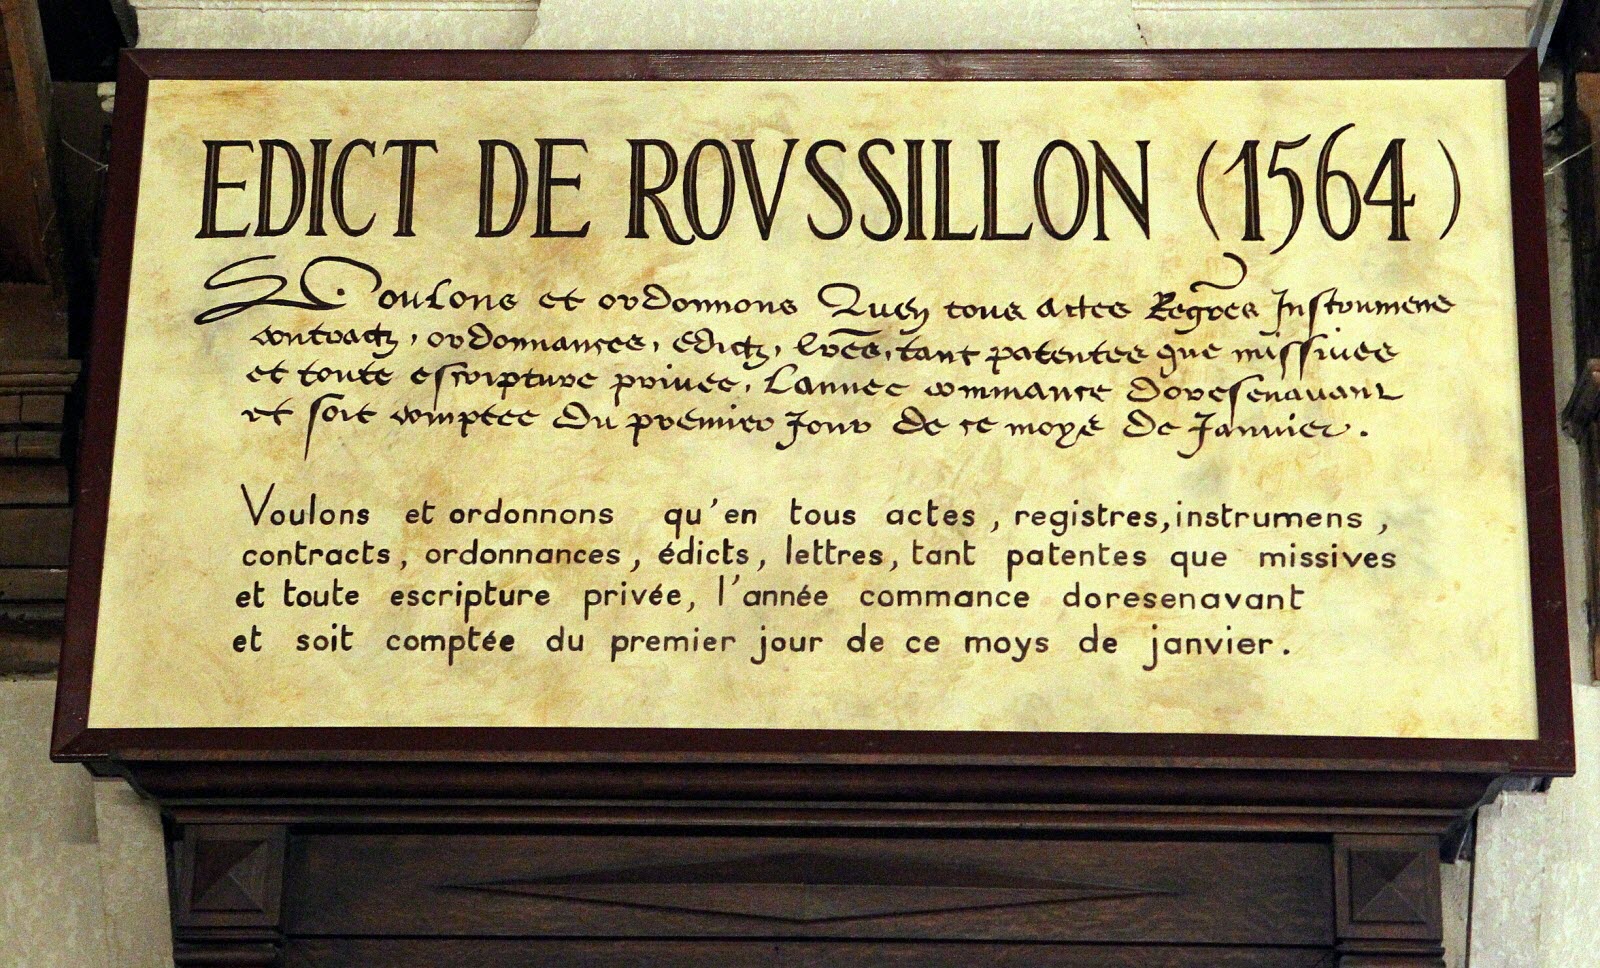 EDICT DE ROVSSILLON (1564)
Voulons et ordonnons Quen tous actes Regr̃es Instrumens
contractz, ordonnances, edictz, lr̃es, tant patentes que missives
et toute escripture privee, Lannee commance doresenavant
et soit comptee du premier Jour de ce moys de Janvier.
Voulons et ordonnons qu'en tous actes, registres, instrumens,
contracts, ordonnances, édicts, lettres, tant patentes que missives
et toute escripture privée, l'année commance doresenavant
et soit comptée du premier jour de ce moys de janvier.